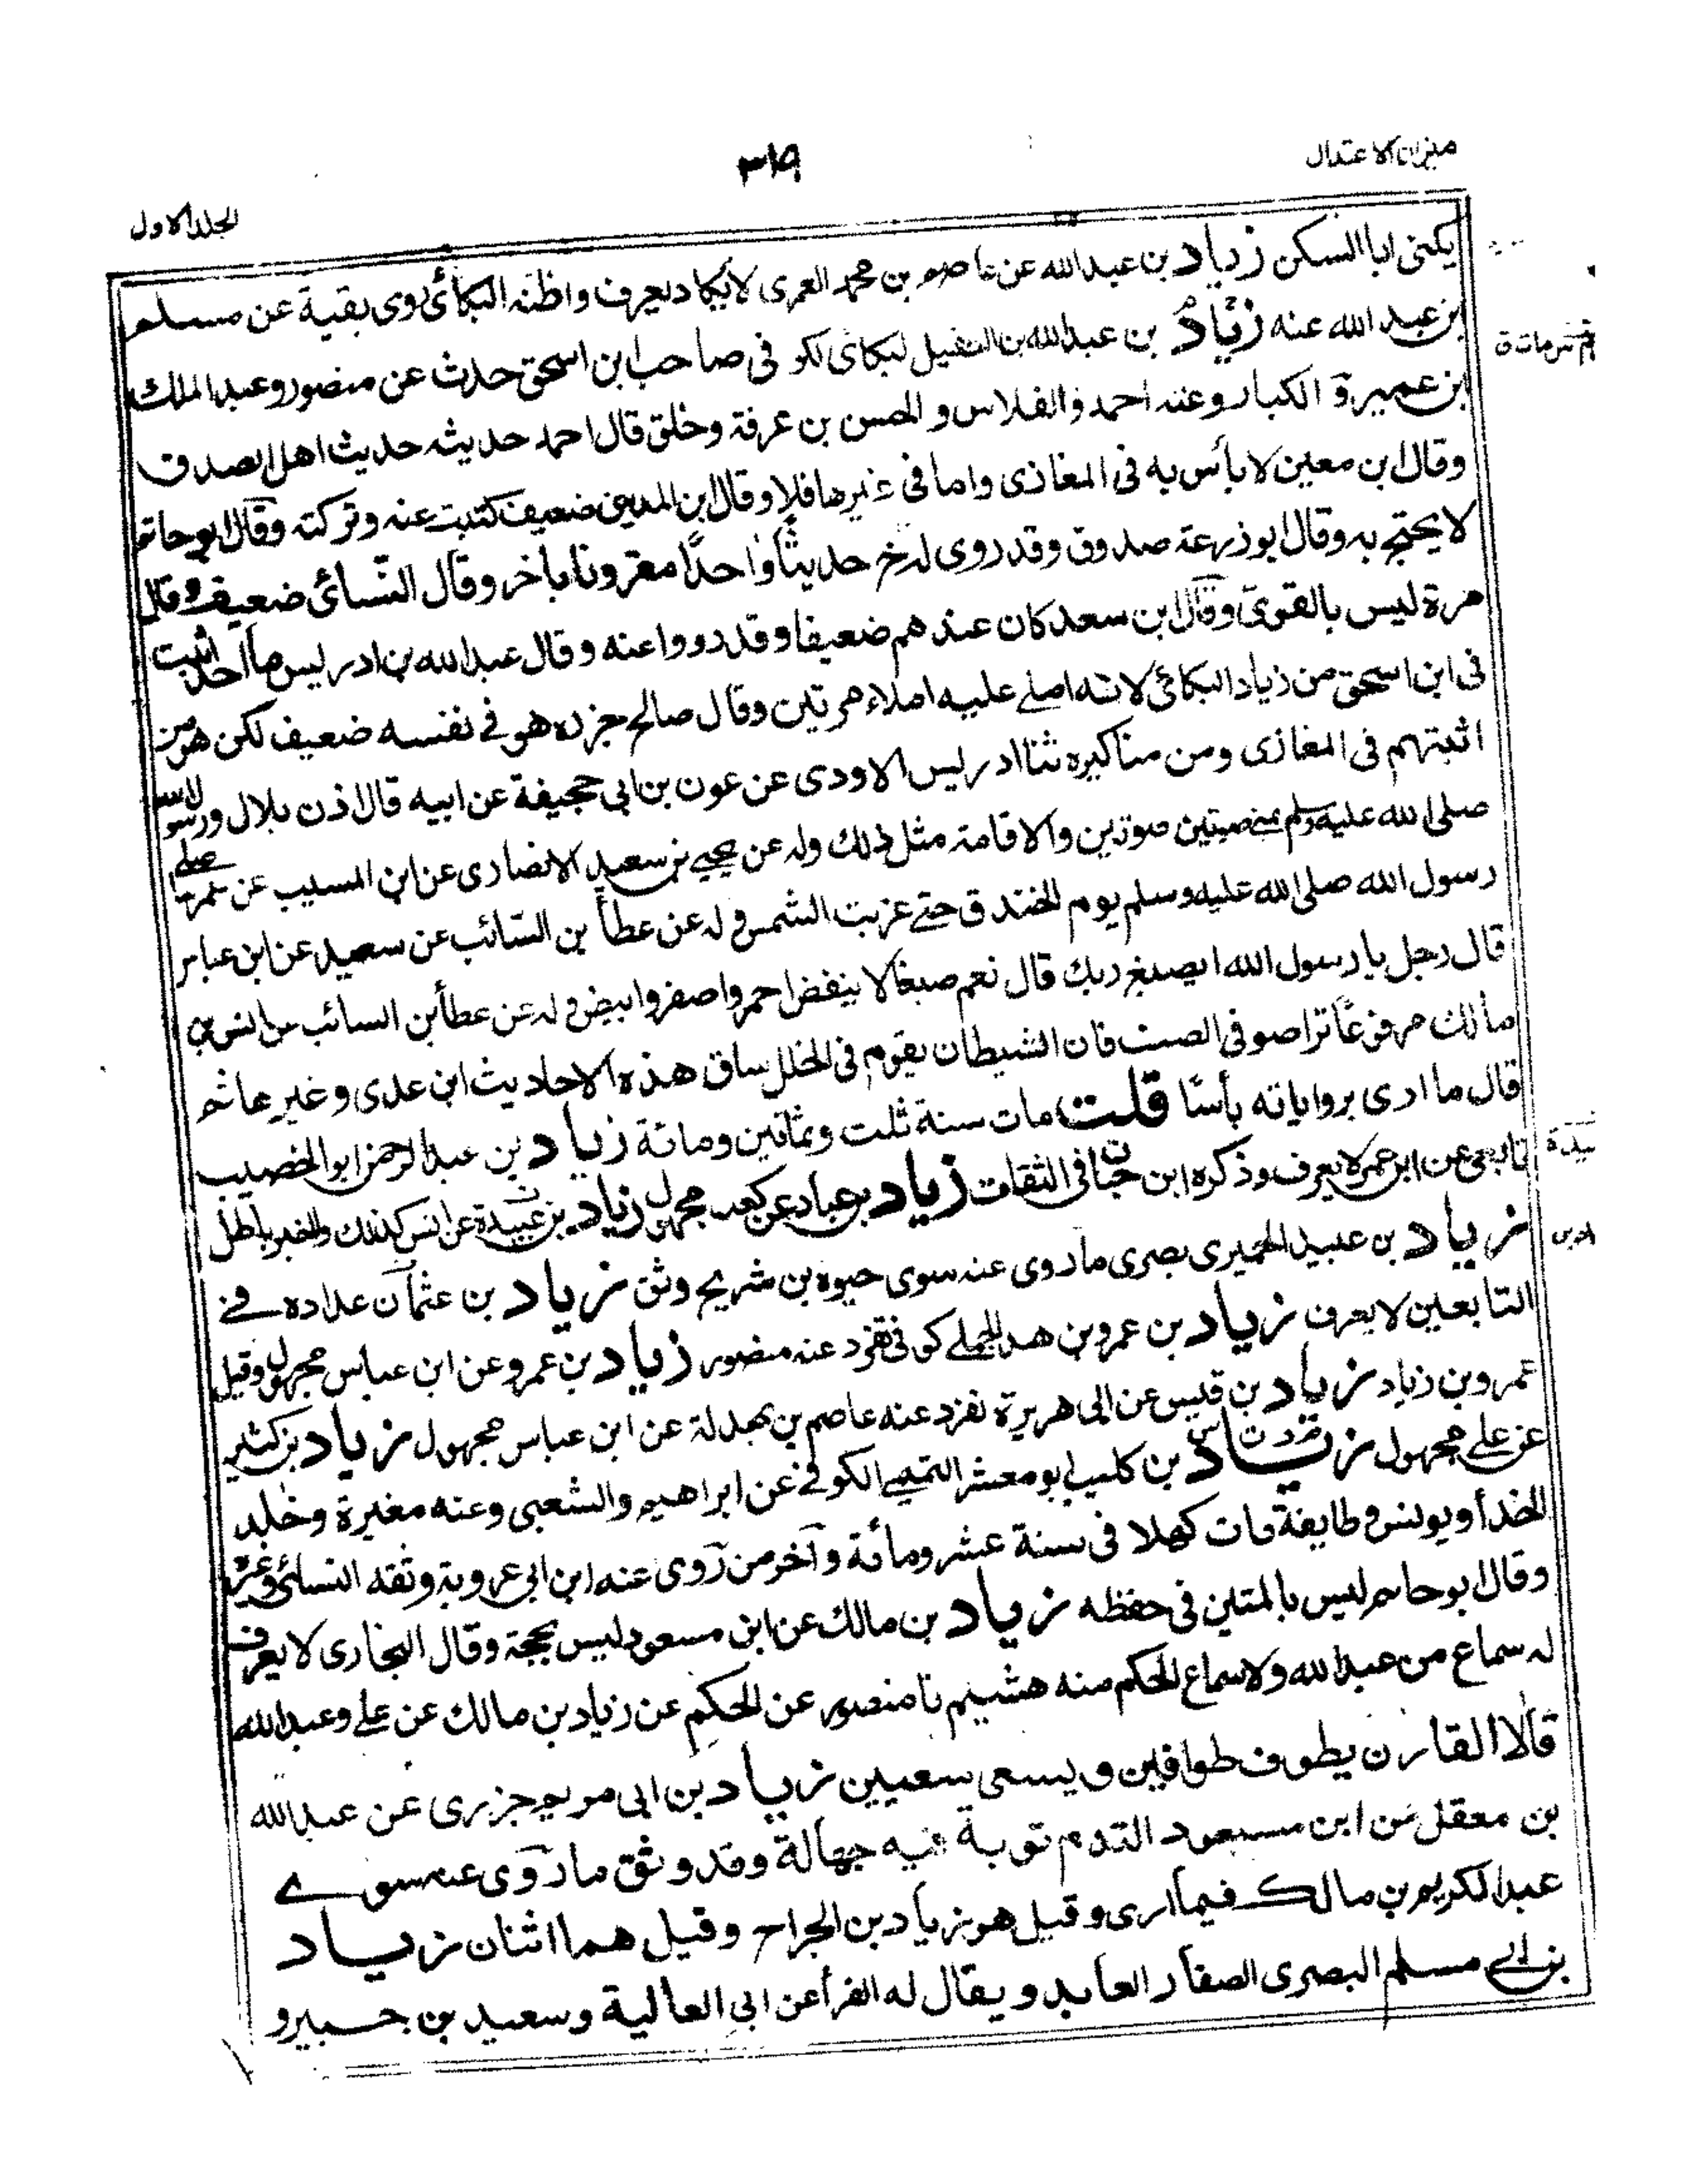 ميزان الاعتدال
٣١٩
الجلد الاول
يكنى ابا السكن زياد بن عبد الله عن عاصم بن محمد العمرى لا يكاد يعرف واظنه البكائى روى بقية عن مسلم
بن عبد الله عنه زياد بن عبد الله بن الطفيل البكائى الكوفى صاحب ابن اسحق حدث عن منصور وعبد الملك
بن عمير و الكبار وعنه احمد والفلاس و الحسن بن عرفة وخلق قال احمد حديثه حديث اهل الصدق
وقال ابن معين لا بأس به فى المغازى واما فى غيرها فلا وقال ابن المدينى ضعيف كتبت عنه وتركته وقال ابو حاتم
لا يحتج به وقال ابو زرعة صدوق وقد روى له خ حديثا واحدًا مقرونا باخر وقال النسائى ضعيف وقال
مرة ليس بالقوىّ وقال ابن سعد كان عندهم ضعيفا وقد رووا عنه وقال عبد الله بن ادريس ما احد اثبت
فى ابن اسحق من زياد البكائى لانه املى عليه املاء مرتين وقال صالح جزره هو فى نفسه ضعيف لكن هو من
اثبتهم فى المغازى ومن مناكيره ثنا ادريس الاودى عن عون بن ابى جحيفة عن ابيه قال اذن بلال لرسول الله
صلى الله عليه وسلم بمنى صوتين صوتين والاقامة مثل ذلك وله عن يحيى بن سعيد الانصارى عن ابن المسيب عن عمر ما صلى
رسول الله صلى الله عليه وسلم يوم الخندق حتى غربت الشمس وله عن عطأ بن السائب عن سعيد عن ابن عباس
قال رجل يا رسول الله ايصبغ ربك قال نعم صبغا لا ينفض احمر واصفر وابيض وله عن عطأ بن السائب عن انس بن
مالك مرفوعًا تراصو فى الصف فان الشيطان يقوم فى الخلل ساق هذه الاحاديث ابن عدى وغيرها ثم
قال ما ارى برواياته بأسًا قلت مات سنة ثلث وثمانين ومائة زياد بن عبد الرحمن ابو الخصيب
تابعى عن ابن عمر لا يعرف وذكره ابن حبان فى الثقات زياد بن عباد عن كعب مجهول زياد بن عبيدة عن انس كذلك والخبر باطل
زياد بن عبيد الحميرى بصرى ما روى عنه سوى حيوة بن شريح وثق زياد بن عثمان عداده فے
التابعين لا يعرف زياد بن عمرو بن هند الجملى كوفى تفرد عنه منصور زياد بن عمرو عن ابن عباس مجهول وقيل
عمرو بن زياد زياد بن قيس عن ابى هريرة تفرد عنه عاصم بن بهدلة عن ابن عباس مجهول زياد بن كثير
عن على مجهول زياد بن كليب ابو معشر التميمى الكوفى عن ابراهيم والشعبى وعنه مغيرة وخلد
الحذأ ويونس وطايفة مات كهلا فى سنة عشر ومائة وآخر من روى عنه ابن ابى عروبة وثقه النسائى وغيره
وقال ابو حاتم ليس بالمتين فى حفظه زياد بن مالك عن ابن مسعود ليس بحجة وقال البخارى لا يعرف
له سماع من عبد الله ولا سماع للحكم منه هشيم نا منصور عن الحكم عن زياد بن مالك عن على وعبد الله
قالا القارن يطوف طوافين ويسعى سعيين زياد بن ابى مريم جزرى عن عبد الله
بن معقل عن ابن مسعود الندم توبة فيه جهالة وقد وثق ما روى عنه سوے
عبد الكريم بن مالك فيما ارى وقيل هو زياد بن الجراح وقيل هما اثنان زياد
بن ابى مسلم البصرى الصفار العابد ويقال له الفرأ عن ابى العالية وسعيد بن جبير و